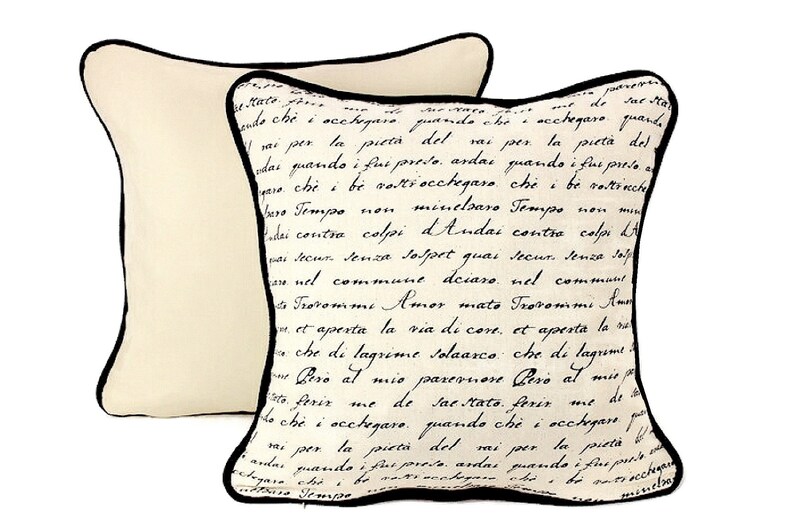 parevuore
sae Stato. ferir me de sae Stato.
ando chè i occhegaro. quando chè i occhegaro. quando
l rai per. la pietà del rai per. la pietà del
rdai quando i fui preso. ardai quando i fui preso. ar
garo. chè i bè vostr occhegaro. chè i bè vostr occhegaro.
baro Tempo non minelbaro Tempo non min
Andai contra colpi d'Andai contra colpi d'A
quai secur. senza sospet quai secur. senza sosp
ciaro. nel commune dciaro. nel commune
ato Trovommi Amor mato Trovommi Am
re. et aperta la via di core. et aperta la via
co: che di lagrime solaarco: che di lagrime
re Però al mio parevuore Però al mio p
Stato. ferir. me de sae Stato. ferir. me de sae
do chè i occhegaro. quando chè i occhegaro. quan
l rai per. la pietà del rai per. la pietà del
ardai quando i fui preso. ardai quando i fui preso.
cchegaro. chè i bè vostr occhegaro. chè i bè vostr occhegaro
minelbaro Tempo non minelbaro